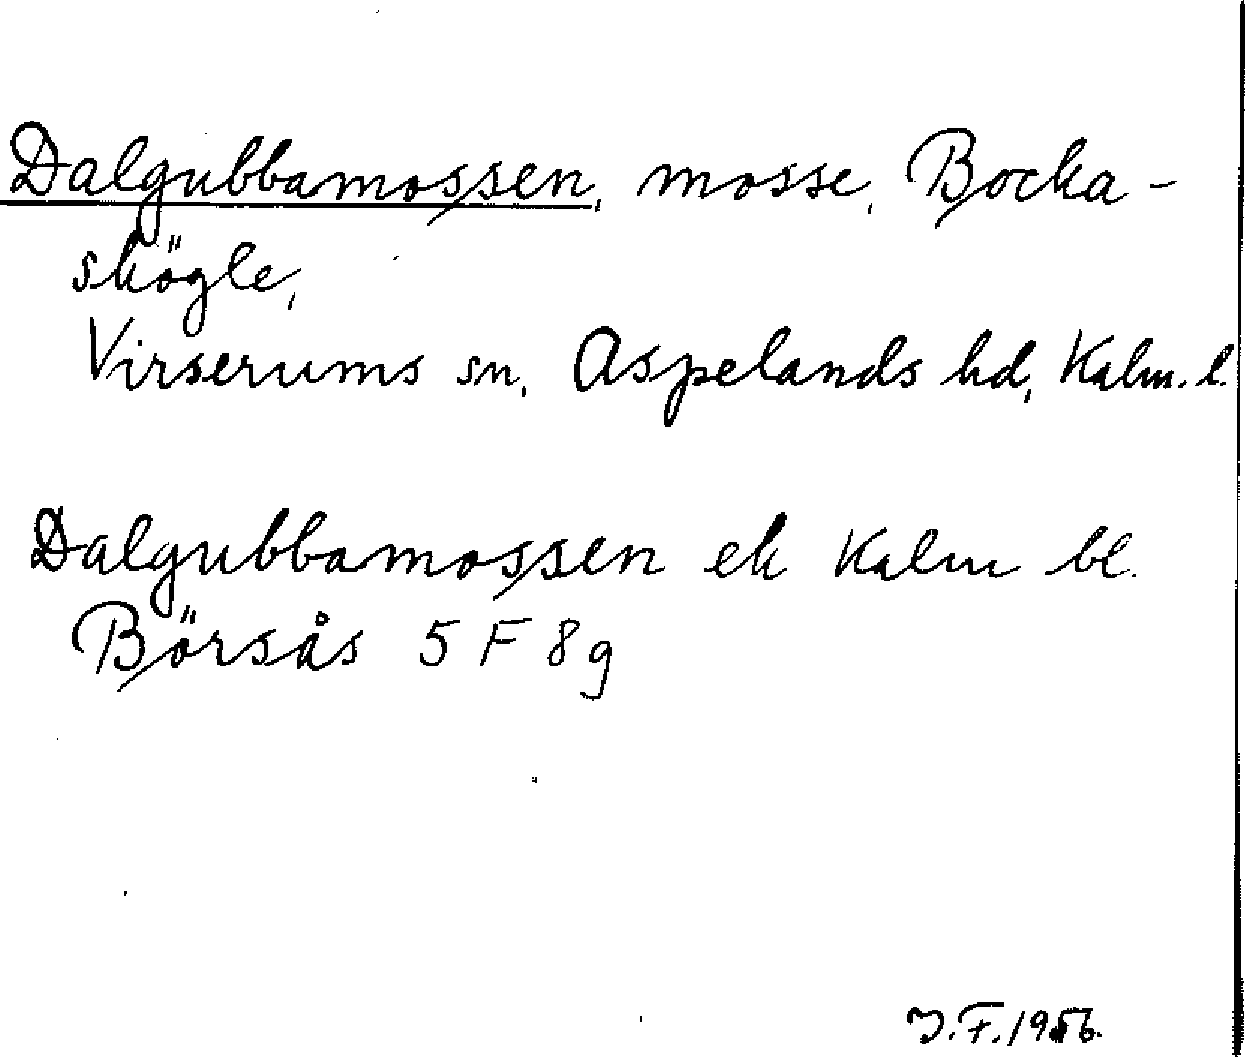 Dalgubbamossen, mosse, Bocka-
skögle,
Virserums sn, Aspelands hd, Kalm. l.
Dalgubbamossen ek Kalm bl.
Börsås 5 F 8 g
J.F. 1956.